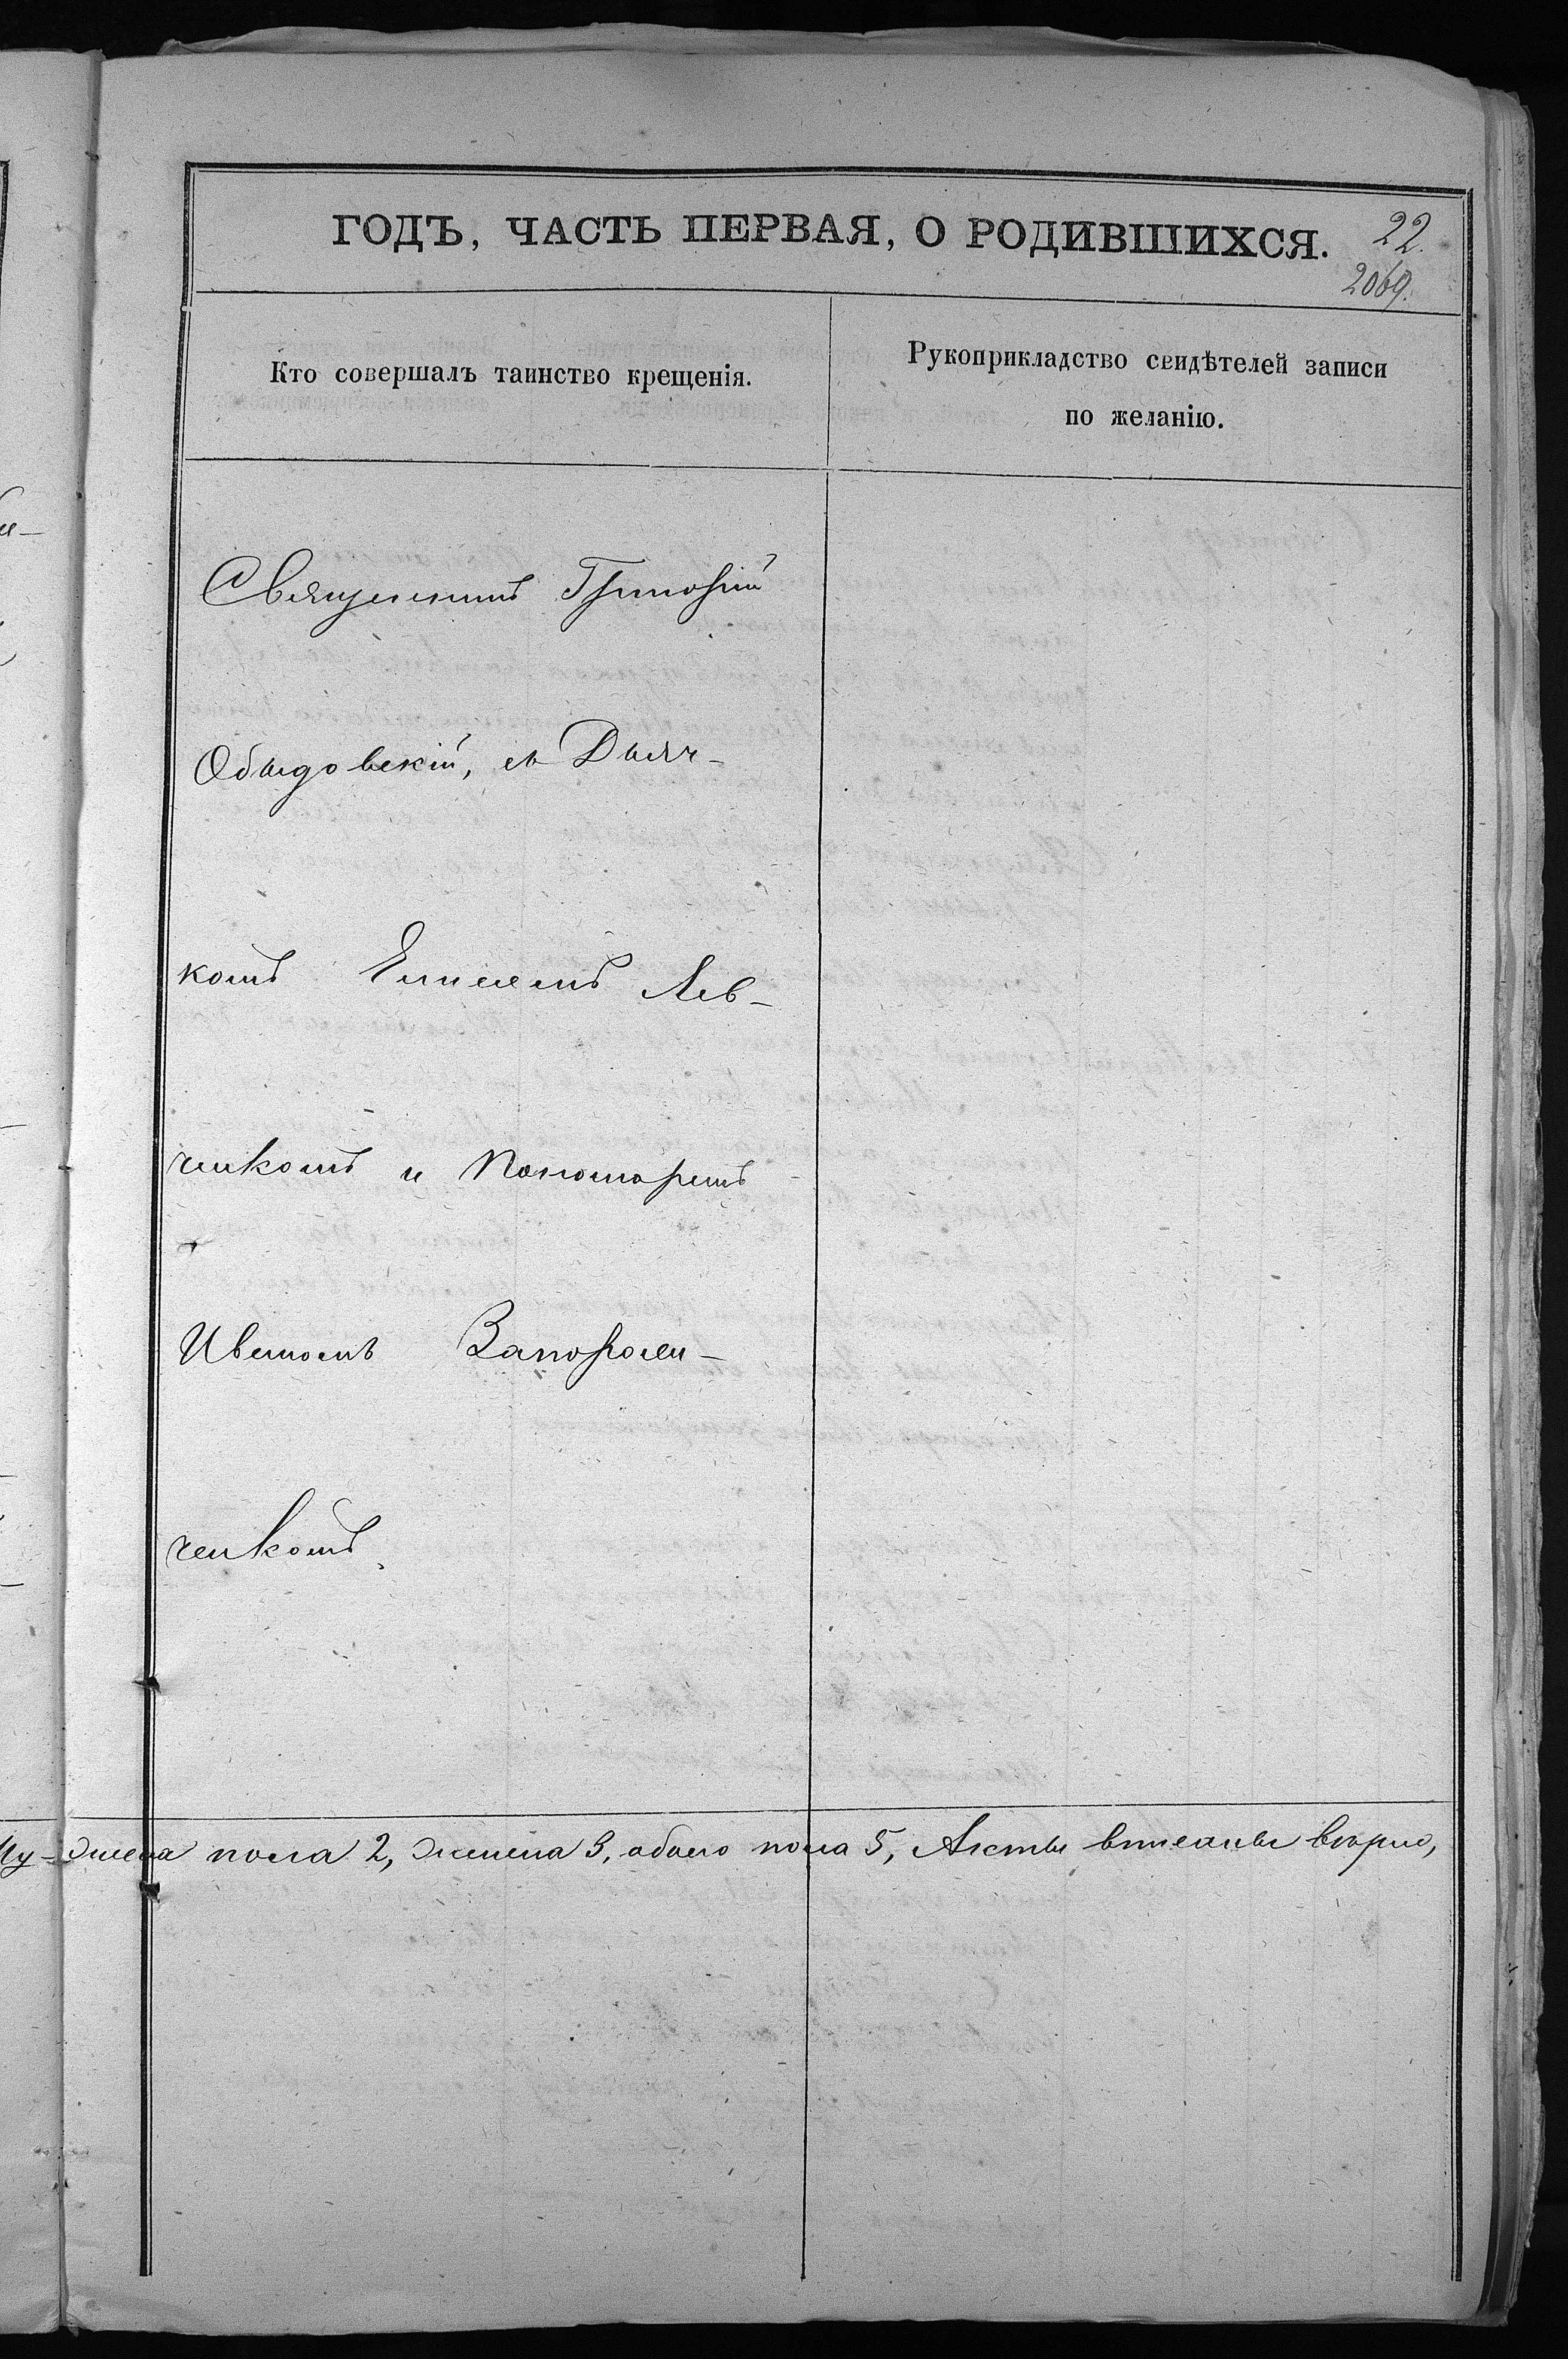 ГОДЪ, ЧАСТЬ ПЕРВАЯ, О РОДИВШИХСЯ.
22.
2069.
Кто совершалъ таинство крещенія.
Рукоприкладство свидѣтелей записи
по желанію.
Священникъ Григорій
Обыдовскій, съ Дьяч-
комъ Елисеемъ Лев-
ченкомъ и Пономаремъ
Иваномъ Запорожен-
ченкомъ.
Му-жеска пола 2, женска 3, обоего пола 5, Акты вписаны вѣрно,